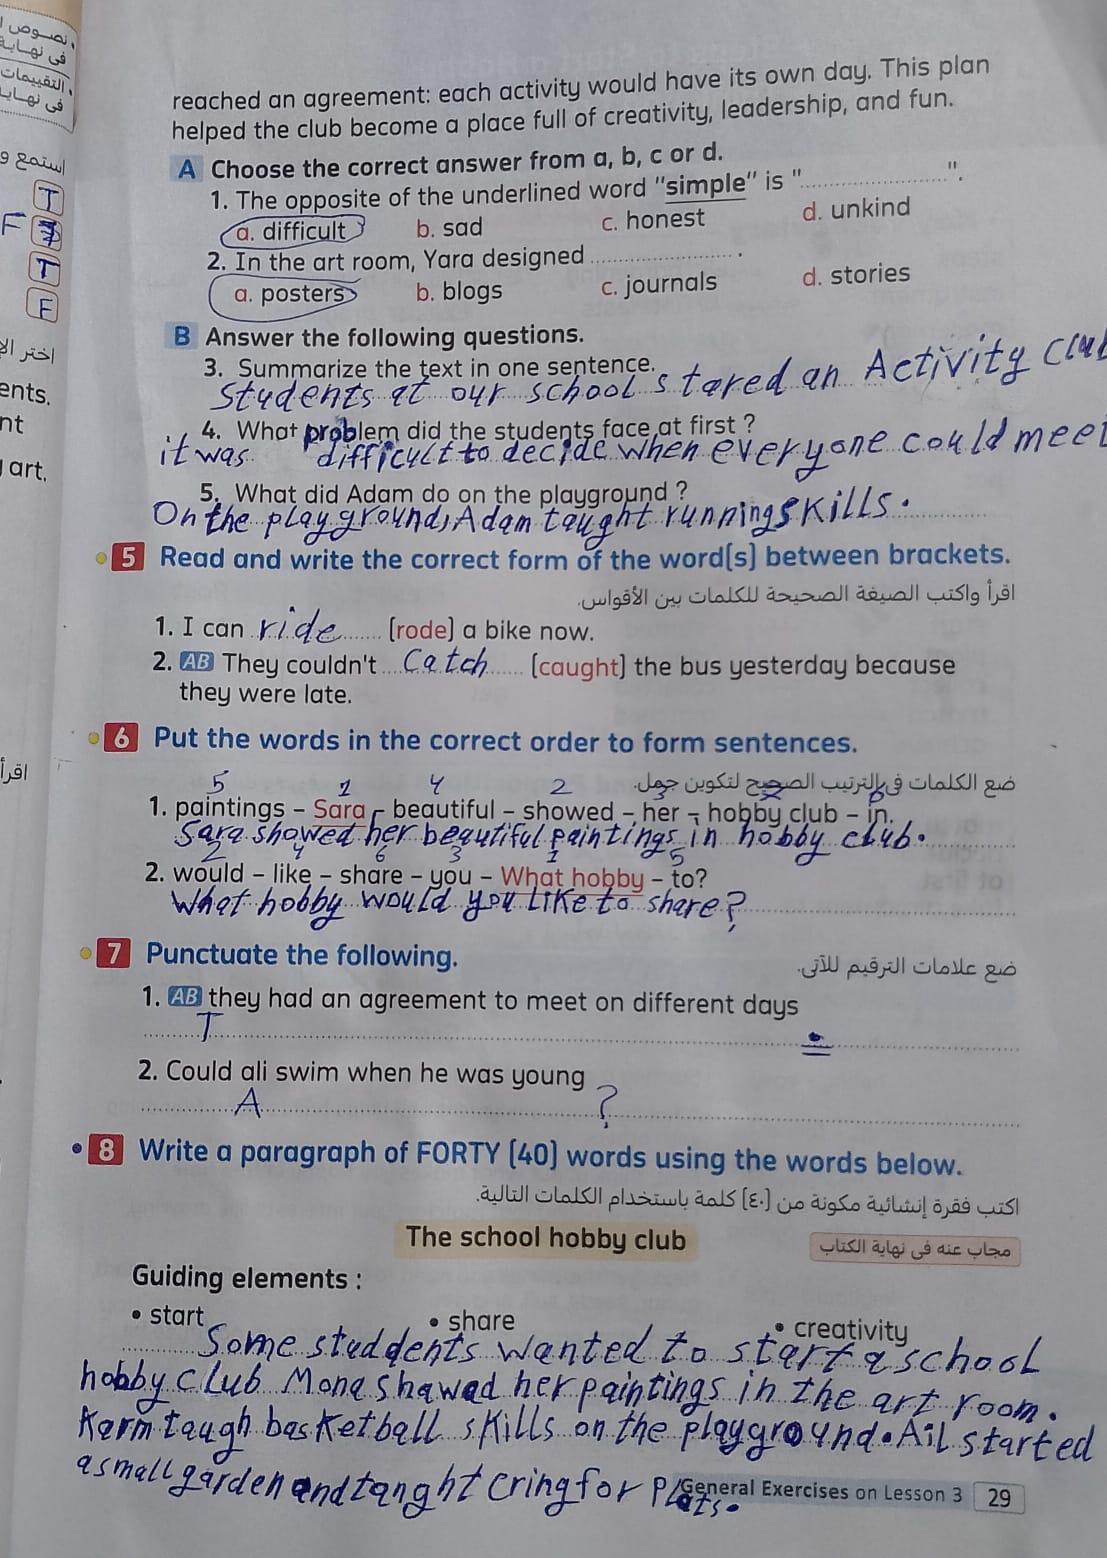 نصوص ا
فى نهاية
التقييمات
فى نهاية
reached an agreement: each activity would have its own day. This plan
helped the club become a place full of creativity, leadership, and fun.
استمع و
T
F
T
F
اختر الإ
ents.
nt
art.
اقرأ
A Choose the correct answer from a, b, c or d.
1. The opposite of the underlined word "simple" is "....................".
a. difficult b. sad c. honest d. unkind
2. In the art room, Yara designed .................... .
a. posters b. blogs c. journals d. stories
B Answer the following questions.
3. Summarize the text in one sentence.
Students at our school stared an Activity Club
4. What problem did the students face at first ?
it was difficult to decide when everyone could meet
5. What did Adam do on the playground ?
On the playground, Adam taught running skills.
5 Read and write the correct form of the word(s) between brackets.
اقرأ واكتب الصيغة الصحيحة للكلمات بين الأقواس.
1. I can ride (rode) a bike now.
2. AB They couldn't Catch (caught) the bus yesterday because
they were late.
6 Put the words in the correct order to form sentences.
ضع الكلمات في الترتيب الصحيح لتكوين جمل.
5 1 4 2 3 7 6
1. paintings - Sara - beautiful - showed - her - hobby club - in.
Sara showed her beautiful paintings in hobby club.
2 4 6 3 1 5
2. would - like - share - you - What hobby - to?
What hobby would you like to share?
7 Punctuate the following.
ضع علامات الترقيم للآتى.
1. AB they had an agreement to meet on different days
T .
2. Could ali swim when he was young
A ?
8 Write a paragraph of FORTY (40) words using the words below.
اكتب فقرة إنشائية مكونة من (٤٠) كلمة باستخدام الكلمات التالية.
The school hobby club
مجاب عنه فى نهاية الكتاب
Guiding elements :
• start • share • creativity
Some studdents wanted to start a school
hobby club Mona shawad her paintings in the art room.
Karm taugh basketball skills on the playground. Ail started
a small garden and tanght cring for plats.
General Exercises on Lesson 3 29